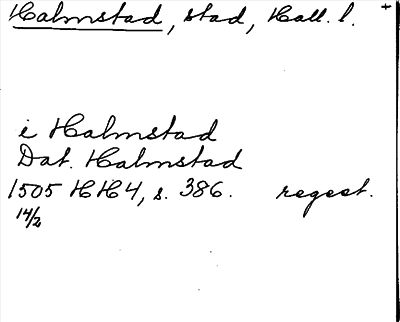 Halmstad, stad, Hall. l. +
i Halmstad
Dat. Halmstad
1505 HH4, s. 386. regest.
14/2